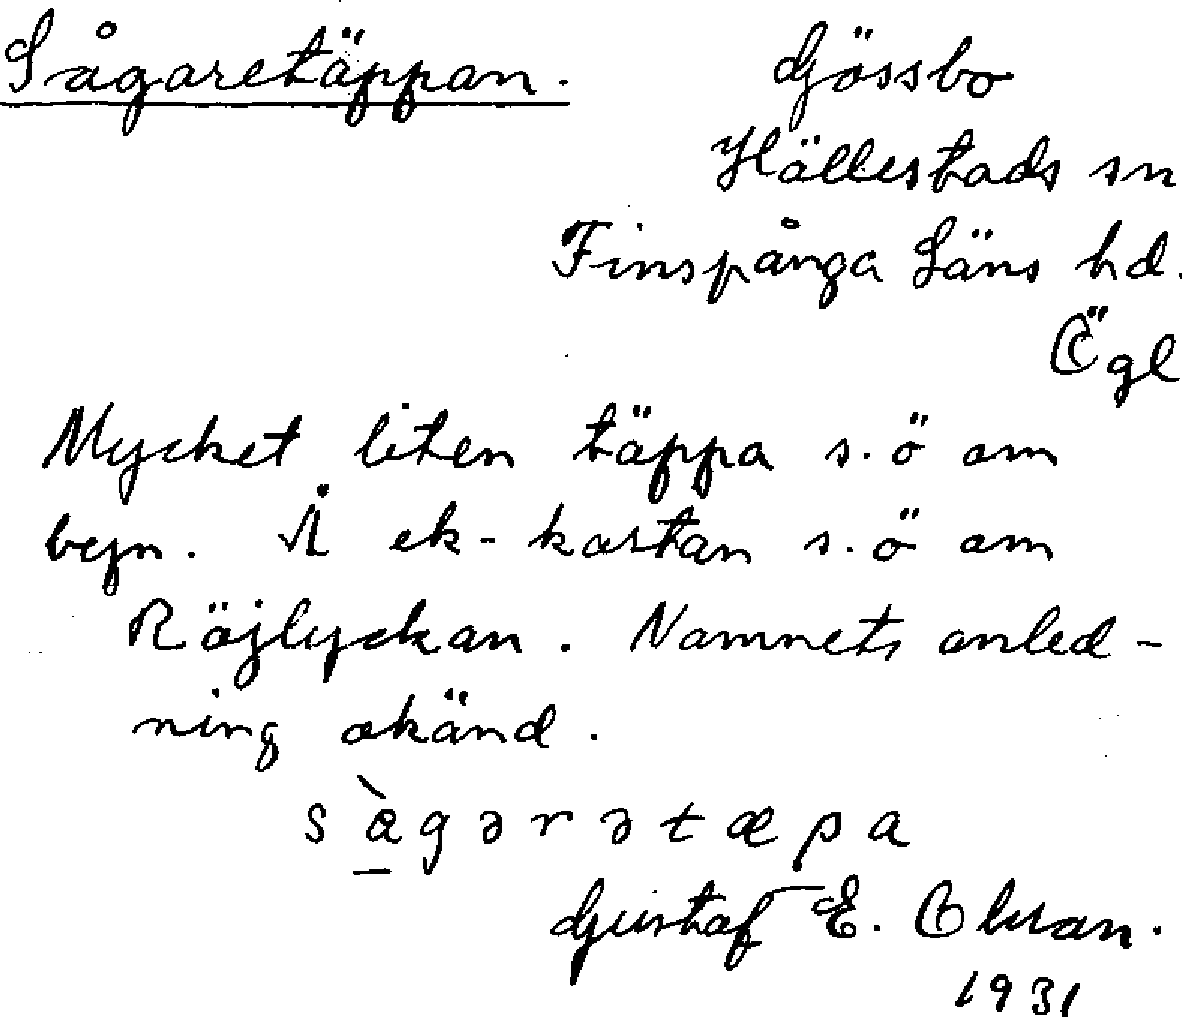 Sågaretäppan.
Gössbo
Hällestads sn
Finspånga Läns hd.
Ögl
Mycket liten täppa s.ö om
byn. Å ek-kartan s.ö om
Röjlyckan. Namnets anled-
ning okänd.
sàgərətæpa
Gustaf E.
1931